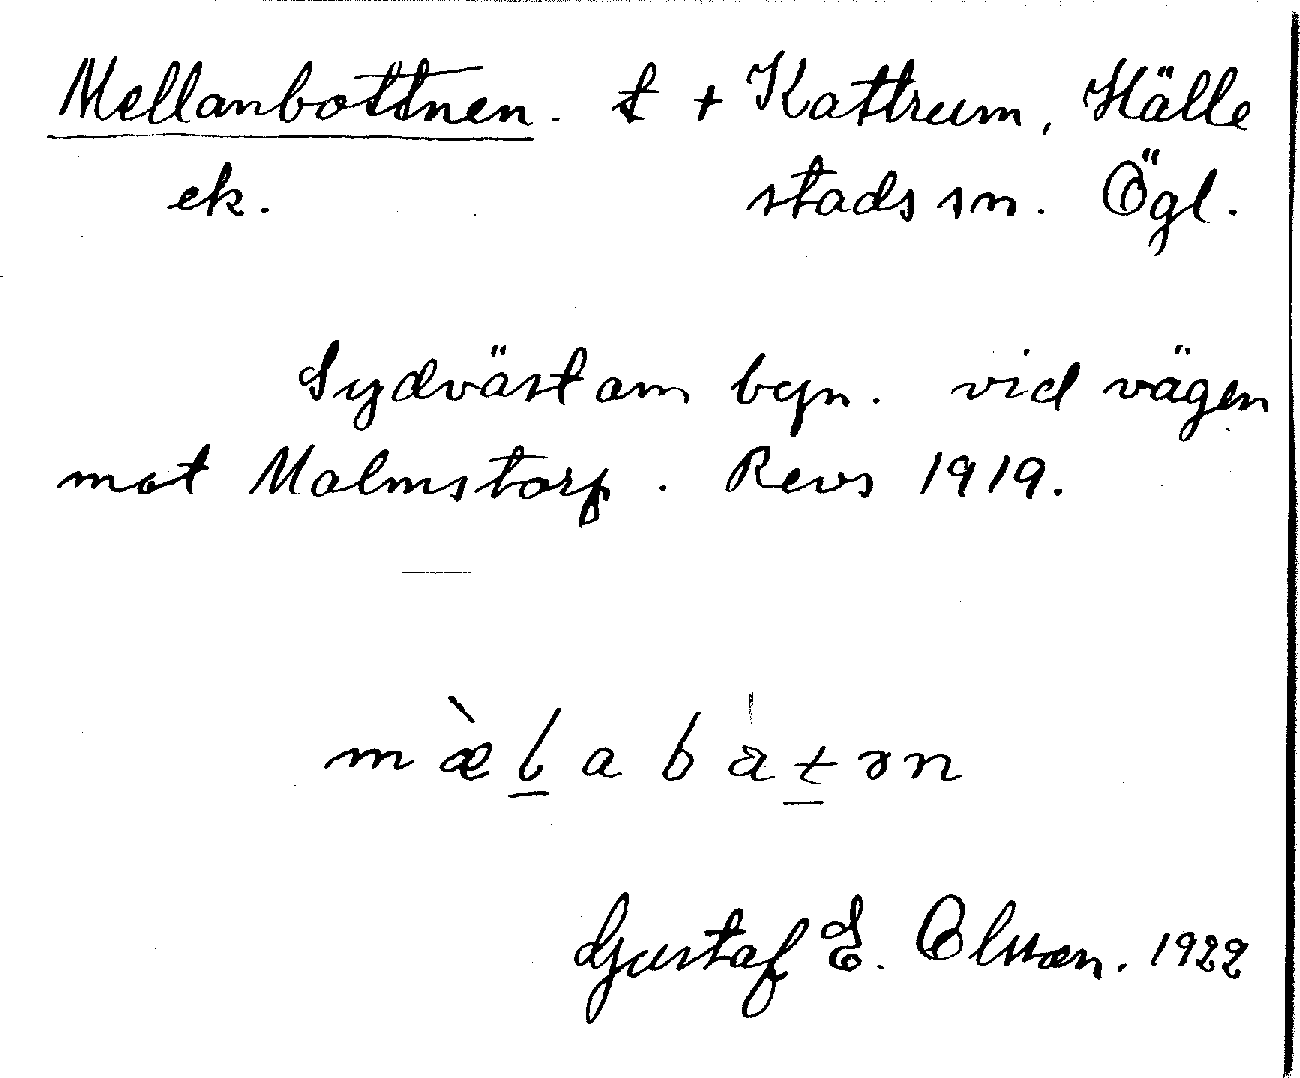 Mellanbottnen. t + Kattrum, Hälle
ek. stads sn. Ögl.
Sydväst om byn. vid vägen
mot Malmstorp. Revs 1919.
mæ̀l̲abát̲ən
Gustaf E. Olsson. 1922